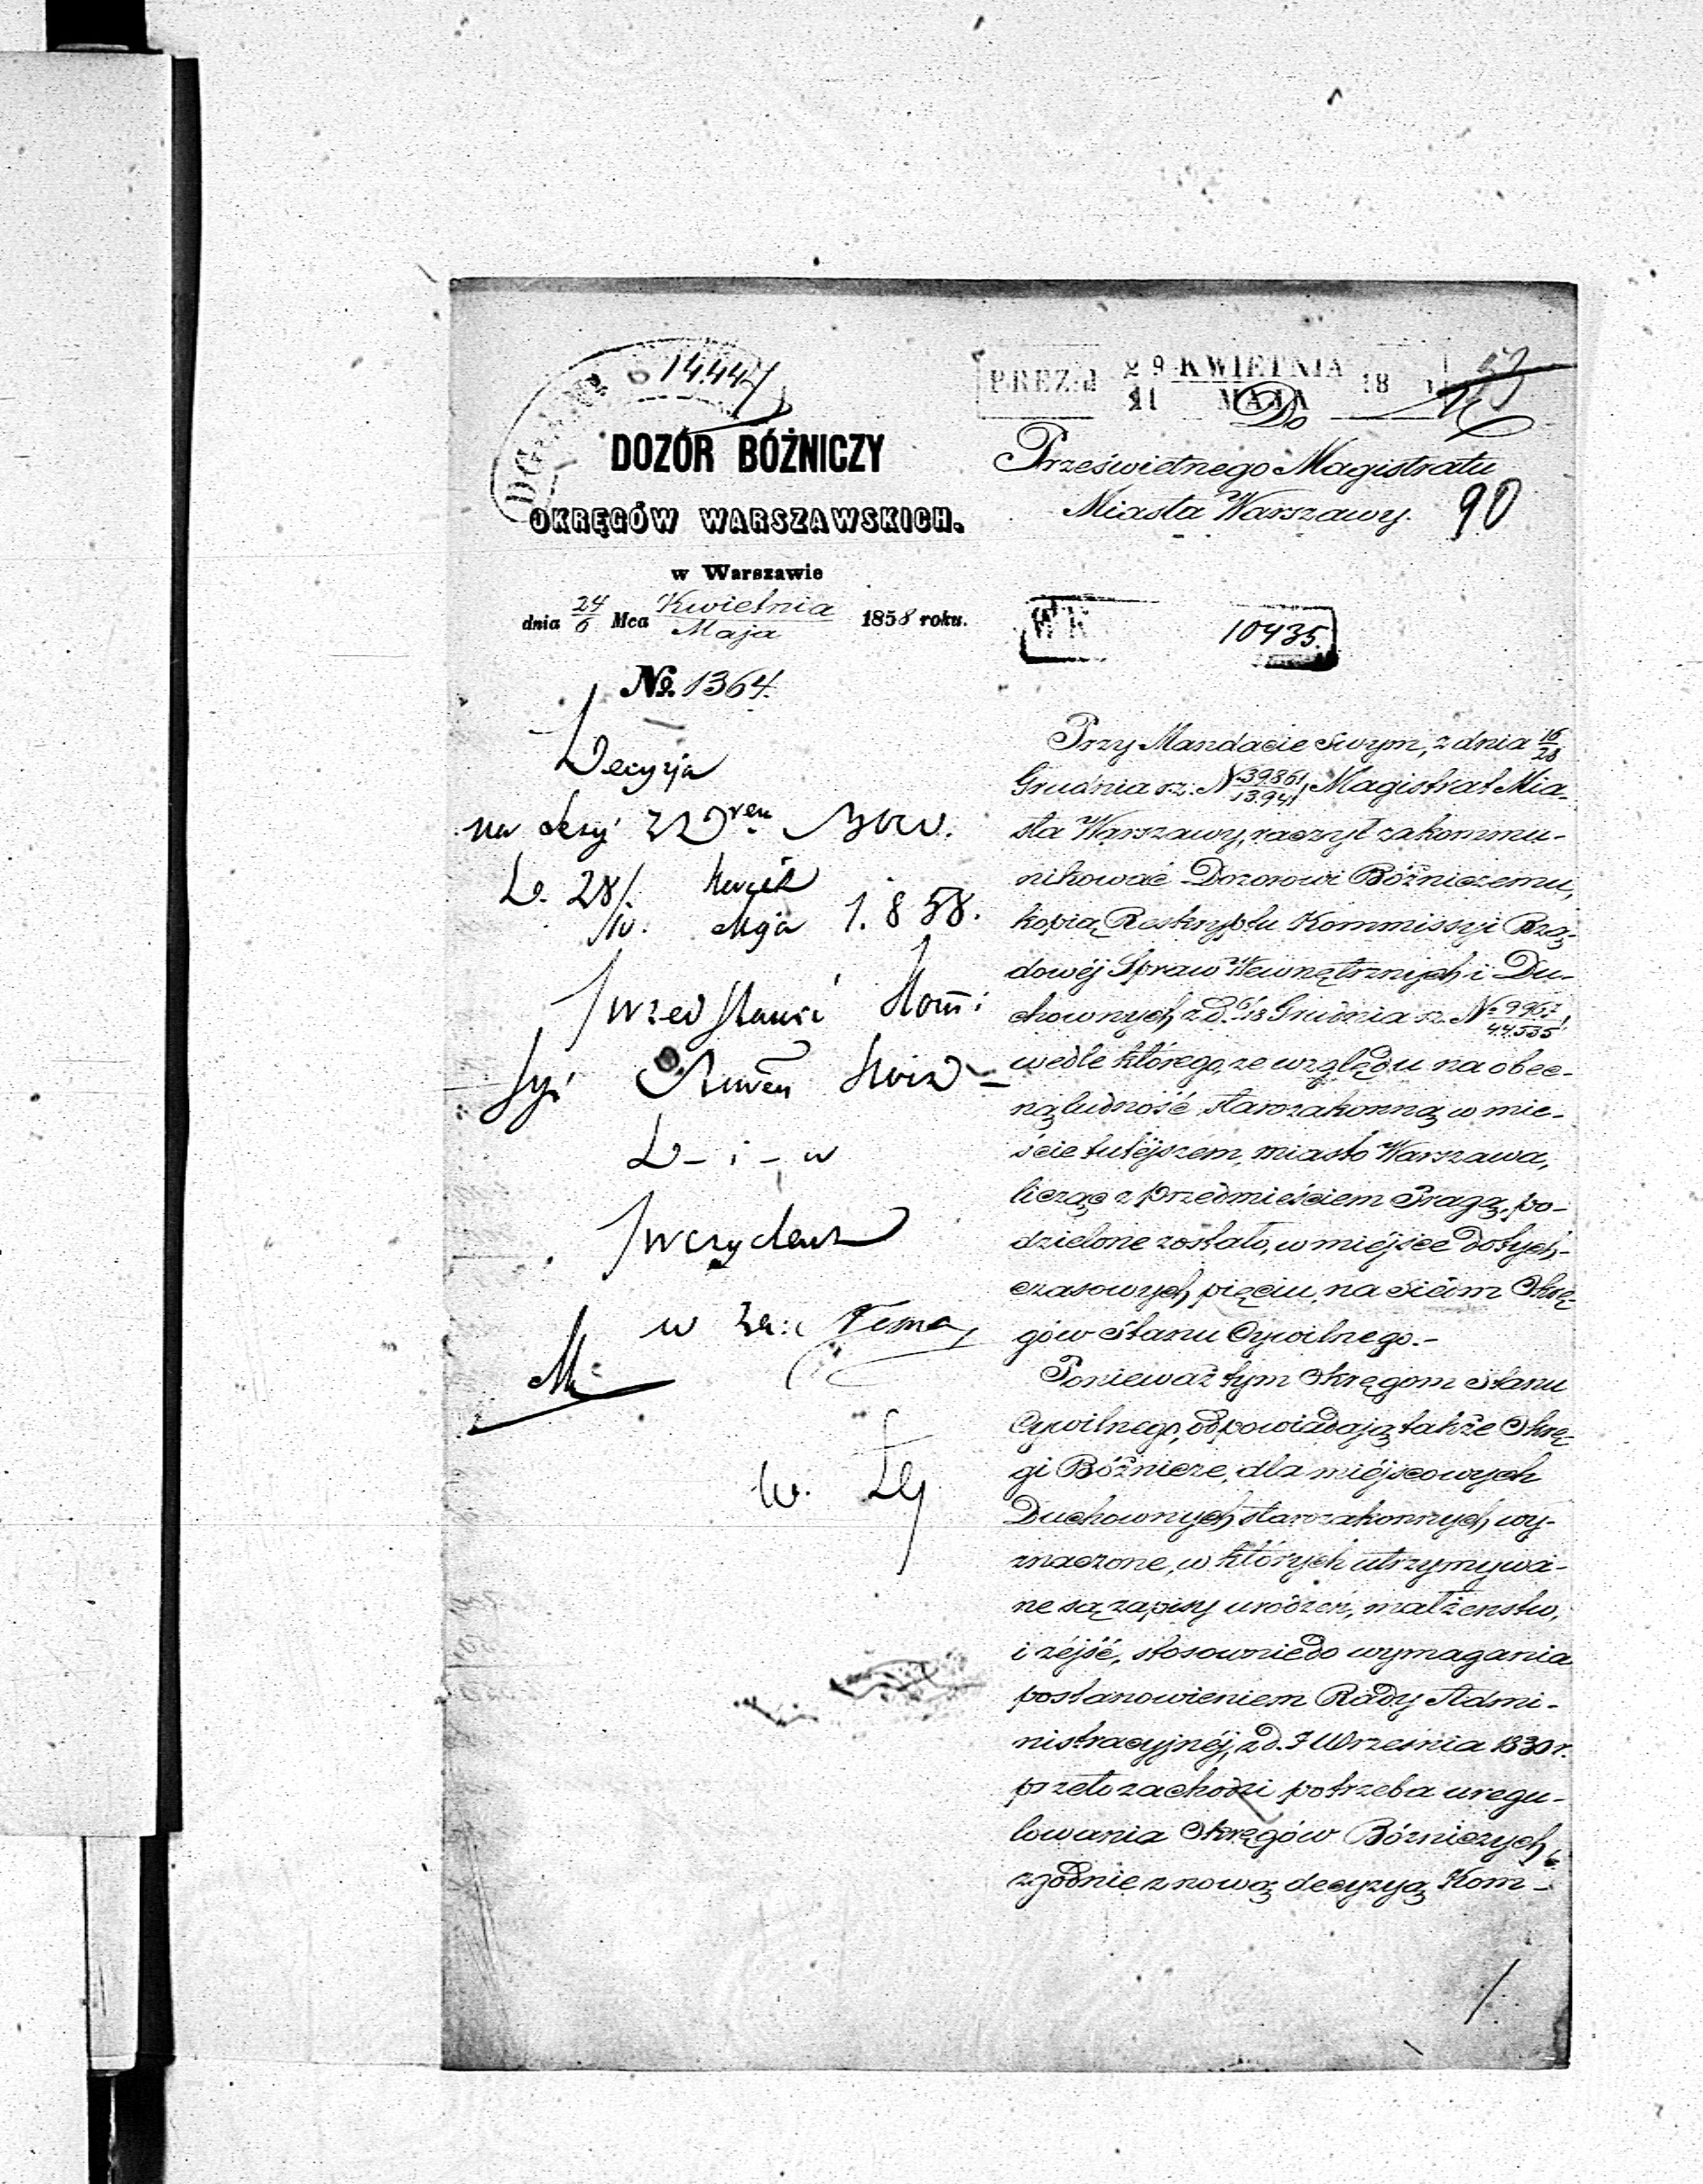 14447
DOZÓR BÓŻNICZY
OKRĘGÓW WARSZAWSKICH.
w Warszawie
dnia 24/6 Mca Kwietnia/Maja 1858 roku.
No. 1364.
Decyzja
na
D. 28/10 Maja 1858.
Przedstawić
Prezydent
w
PREZ. d 29 KWIETNIA 18
11 MAJA
Do
Prześwietnego Magistratu
Miasta Warszawy.
90
10435.
Przy Mandacie swym, z dnia 16/28
Grudnia rz. N 39861/13.941, Magistrat Mia-
sta Warszawy, raczył zakommu-
nikować Dozorowi Bóżniczemu,
kopią Reskryptu Kommissyi Rzą-
dowéj Spraw Wewnętrznych i Du-
chownych z d. 6/18 Grudnia rz. No 9967/44535,
wedle którego, ze względu na obec-
ną ludność starozakonną w mie-
ście tutéjszem, miasto Warszawa,
licząc z przedmieściem Pragą, po-
dzielone zostało, w miéjsce dotych-
czasowych pięciu, na siedm Okrę-
gów Stanu Cywilnego.-
Ponieważ tym Okręgom Stanu
Cywilnego, odpowiadają także Okrę-
gi Bóżnicze, dla miéjscowych
Duchownych starozakonnych wy-
znaczone, w których utrzymywa-
ne są zapisy urodzeń, małżeństw,
i zéjść, stosownie do wymagania
postanowieniem Rady Admi-
nistracyjnéj, z d. 7 Września 1830 r.
przeto zachodzi potrzeba uregu-
lowania Okręgów Bóżniczych,
zgodnie z nową decyzyą Kom-